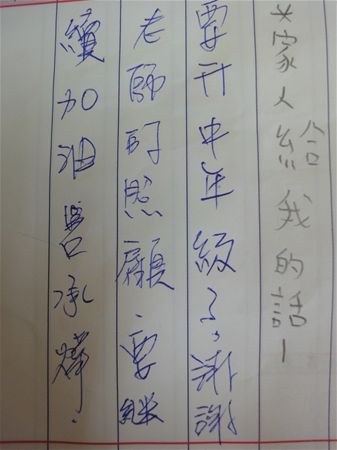 ☆家人給我的話－
要升中年級了,謝謝
老師的照顧、要繼
續加油承燁.